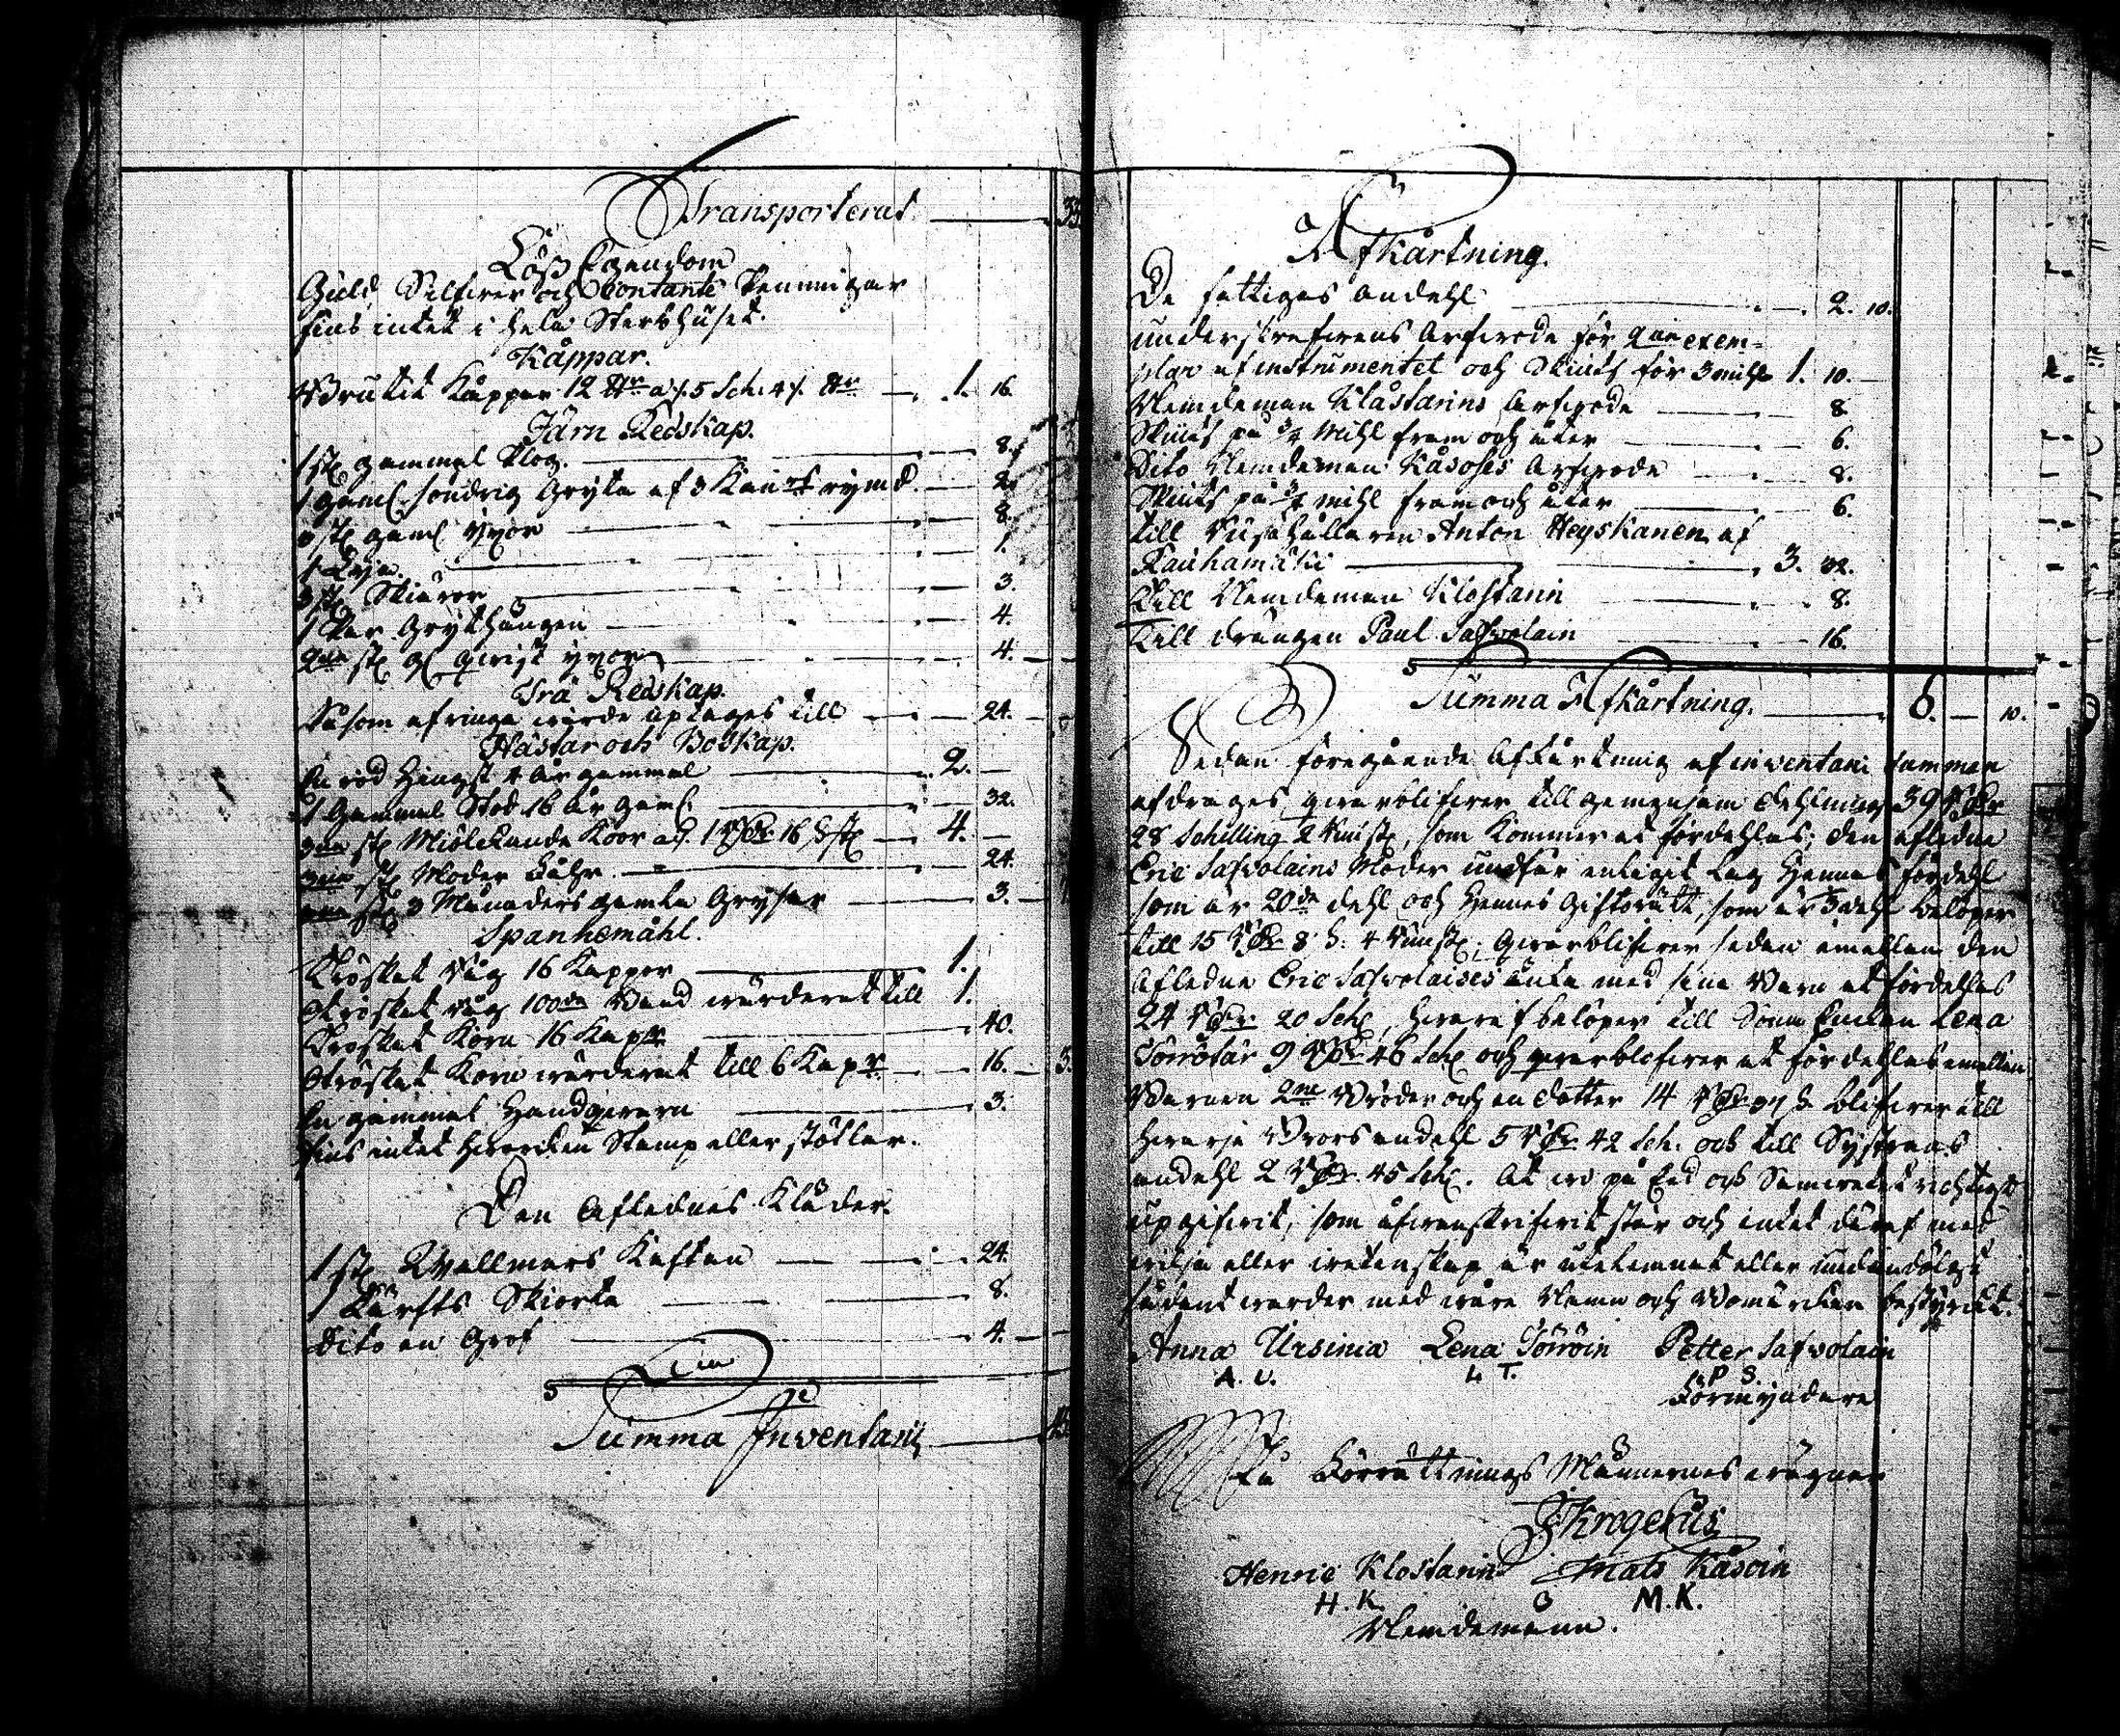 Transporterat 33
Lösz Egendom
Guld, Silfwer och Contante Penningar
fins intet i hela Sterbhuset.
Kåppar.
Brukit Kåppar 12 a 5 Sch. 4 1. 16
Järn Redskap.
1 st gammal Plog. 8
1 gaml söndrig Gryta af 3 Kan rymd. 2
st gaml yxor 8
1 1.
3 st Skiäror 3.
1 Par Grythängen 4.
2ne st yxor 4.
Trä Redskap.
Såsom af ringa wärde uptages till 24.
Hästar och Boskap.
En röd Hingst 4 år gammal 2.
1 Gammal Stod 16 år gaml. 32.
3ne st Miölkande Koor a 1 16 S st 4.
3ne st Moder Fåhr 24
3 Månaders gamla Gryser 3.
Spanhemåhl.
Tröskat råg 16 Kappar 1.
Otröskat råg 100de Band wärderat till 1.
Tröskat Korn 16 Kapr 40.
Otröskat Korn wärderat till 6 Kapr 16. 3.
En gammal Handqwarn 3.
fins intet hwarken Stamp eller stötlar.
Den Aflednes Kläder.
1 st Wallmars Kaftan 24.
1 Lärfts Skiorta 8.
Dito en Grof 4.
Summa Inventarii
Afkårtning.
De fattigas andehl 2. 10.
underskrefwens Arfwode för 2ne exem=
plar af instrumentet och Skiuts för 3 mihl 1. 10.
Nemdeman Klåstarins Arfwode 8.
Skiuts på 3/4 Mihl fram och åter 6.
Dito Nemdeman Kåsoses Arfwode 8.
Skiuts på 3/4 mihl fram och åter 6.
till Husshållaren Anton Heyskanen af
Rauhamäki 3. 32.
Till Nemdeman Klostarin 8.
Till drängen Paul Safwolain 16.
Summa Afkårtning. 6. 10.
Sedan föregående Afkårtning af inventarii summan
afdrages qwarblifwer till gemensam dehlning 39
28 Schilling 2 st, som kommer at fördehlas; den aflidne
Eric Safwolains Moder undfår enligit Lag Hennes fördehl
som är 20de dehl och Hennes Giftorätt, som är 3 dehl belöper
till 15 8 S. 4 ; Qwarblifwer sedan emellan den
Aflidne Eric Safwolaises änka med sina Barn at fördehlas
24 20 Sch, hwaraf belöper till Enkan Lena
Törrötär 9 46 Sch och qwarblifwer at fördehlas emellan
Barnen 2ne Bröder och en dotter 14 S. blifwer till
hwarje Brors andehl 5 42 Sch. och till Systrens
andehl 2 45 Sch. At wi på Eed och Samwete richtigt
upgifwit, som åfwanskrifwit står och intet däraf med
wilja eller wetenskap är utelemnat eller undandölgt
sådant warder med wåra Namn och Bomärken bestyrckt.
Anna Ursinia Lena Törröin Petter Safwolain
A. U. L. T. P. S.
Förmyndare
På Förrättnings Männernas wägnar
Krogelius
Henric Klostarin Mats Kåsoin
H. K. M. K.
Nemdemänn.